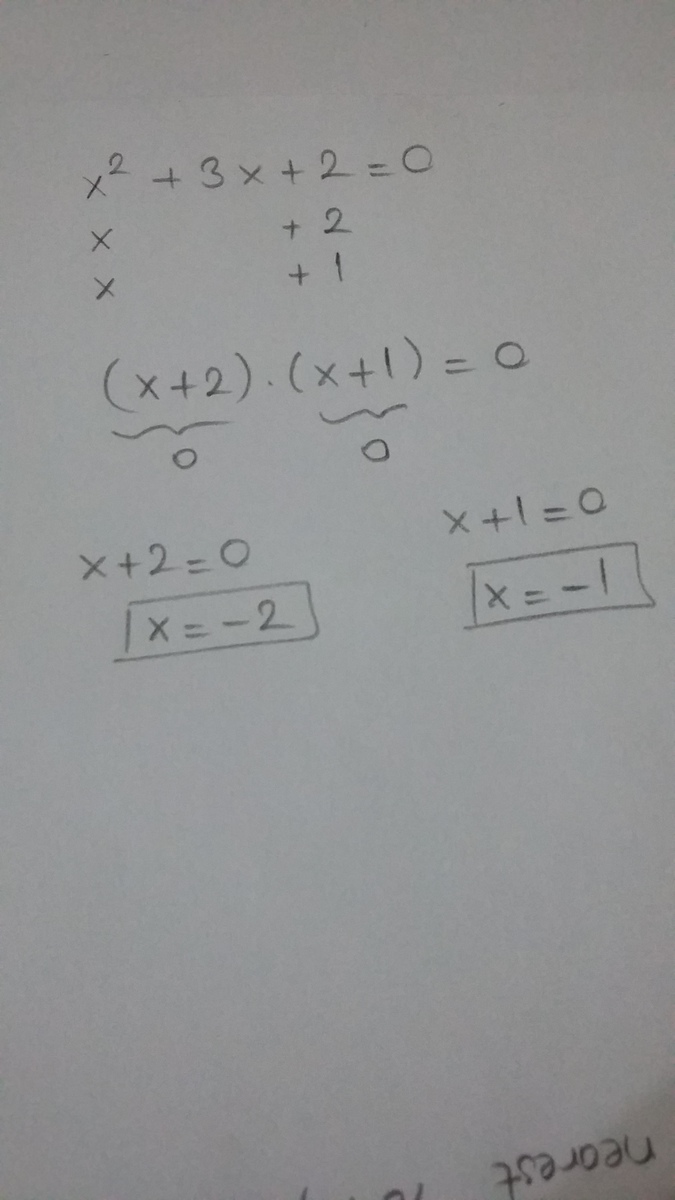 x² + 3x + 2 = 0
x + 2
x + 1
(x+2) . (x+1) = 0
0 0
x+2=0 x+1=0
x = -2 x = -1
nearest